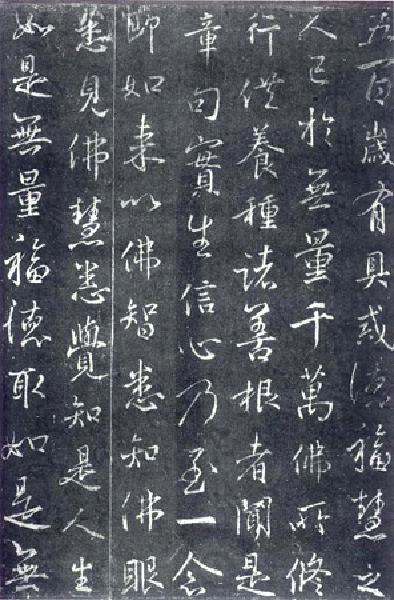 五百歲有具戒德福慧之
人已於無量千萬佛所修
行供養種諸善根者聞是
章句實生信心乃至一念
即如来以佛智悉知佛眼
悉見佛慧悉覺知是人生
如是無量福德取如是無